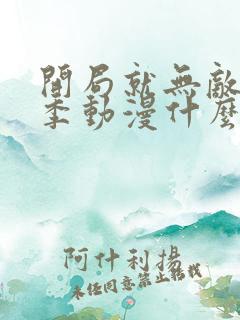 開局就無敵
季動漫什麼
阿什利揚
未經同意禁止轉載